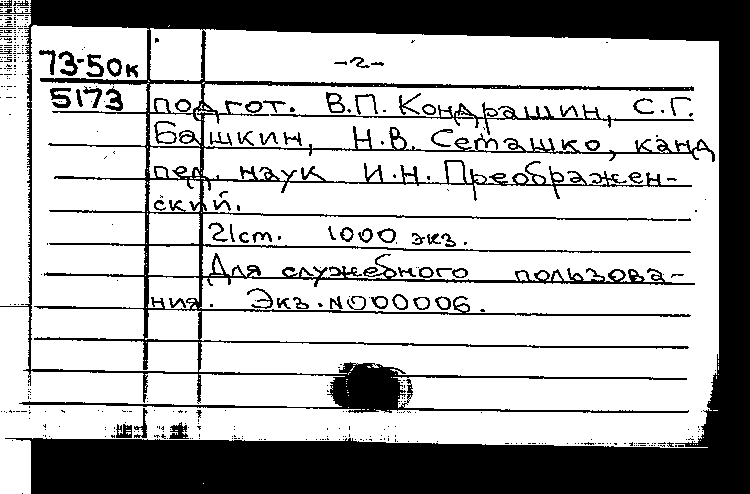 73-50к -2-
5173 подгот. В.П. Кондрашин, С.Г.
Башкин, Н.В. Сеташко, канд
пед. наук И.Н. Преображен-
ский.
21cm. 1000 экз.
Для служебного пользова-
ния. Экз. №000006.